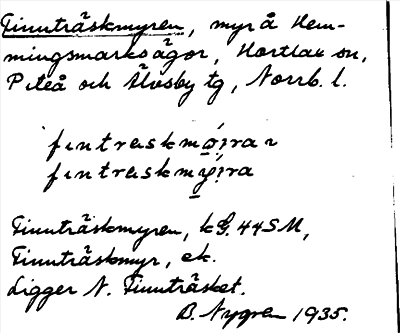 Finnträskmyren, myr å Hem-
mingsmarksägor, Hortlax sn,
Piteå och Älvsby tg, Norrb. l.
fıntrɛskmó̤ịraɴ
fıntrɛskmý̤ịra
Finnträskmyren, kg. 44SM,
Finnträskmyr, ek.
Ligger N. Finnträsket.
B. Nygren 1935.